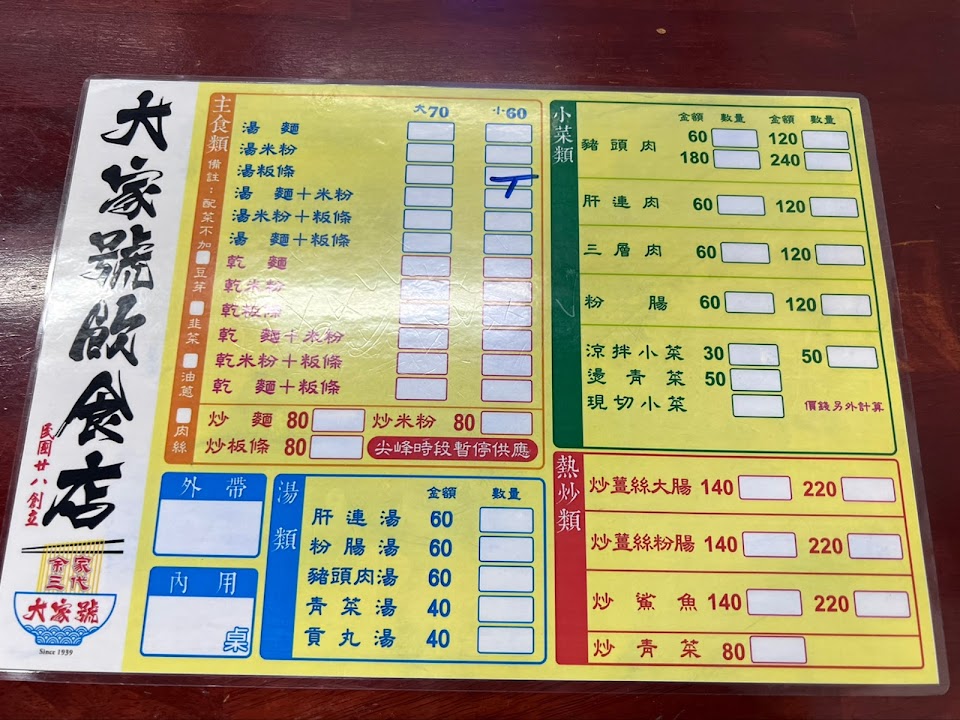 大家號飲食店
民國廿八創立
余家
三代
大家號
Since 1939
主食類
備註：配菜不加
豆芽
韭菜
油蔥
肉絲
大70 小60
湯麵
湯米粉
湯粄條
湯麵＋米粉
湯米粉＋粄條
湯麵＋粄條
乾麵
乾米粉
乾粄條
乾麵＋米粉
乾米粉＋粄條
乾麵＋粄條
炒麵 80 炒米粉 80
炒粄條 80 尖峰時段暫停供應
外帶
內用
桌
湯類
金額 數量
肝連湯 60
粉腸湯 60
豬頭肉湯 60
青菜湯 40
貢丸湯 40
小菜類
金額 數量 金額 數量
豬頭肉 60 120
180 240
肝連肉 60 120
三層肉 60 120
粉腸 60 120
涼拌小菜 30 50
燙青菜 50
現切小菜 價錢另外計算
熱炒類
炒薑絲大腸 140 220
炒薑絲粉腸 140 220
炒鯊魚 140 220
炒青菜 80